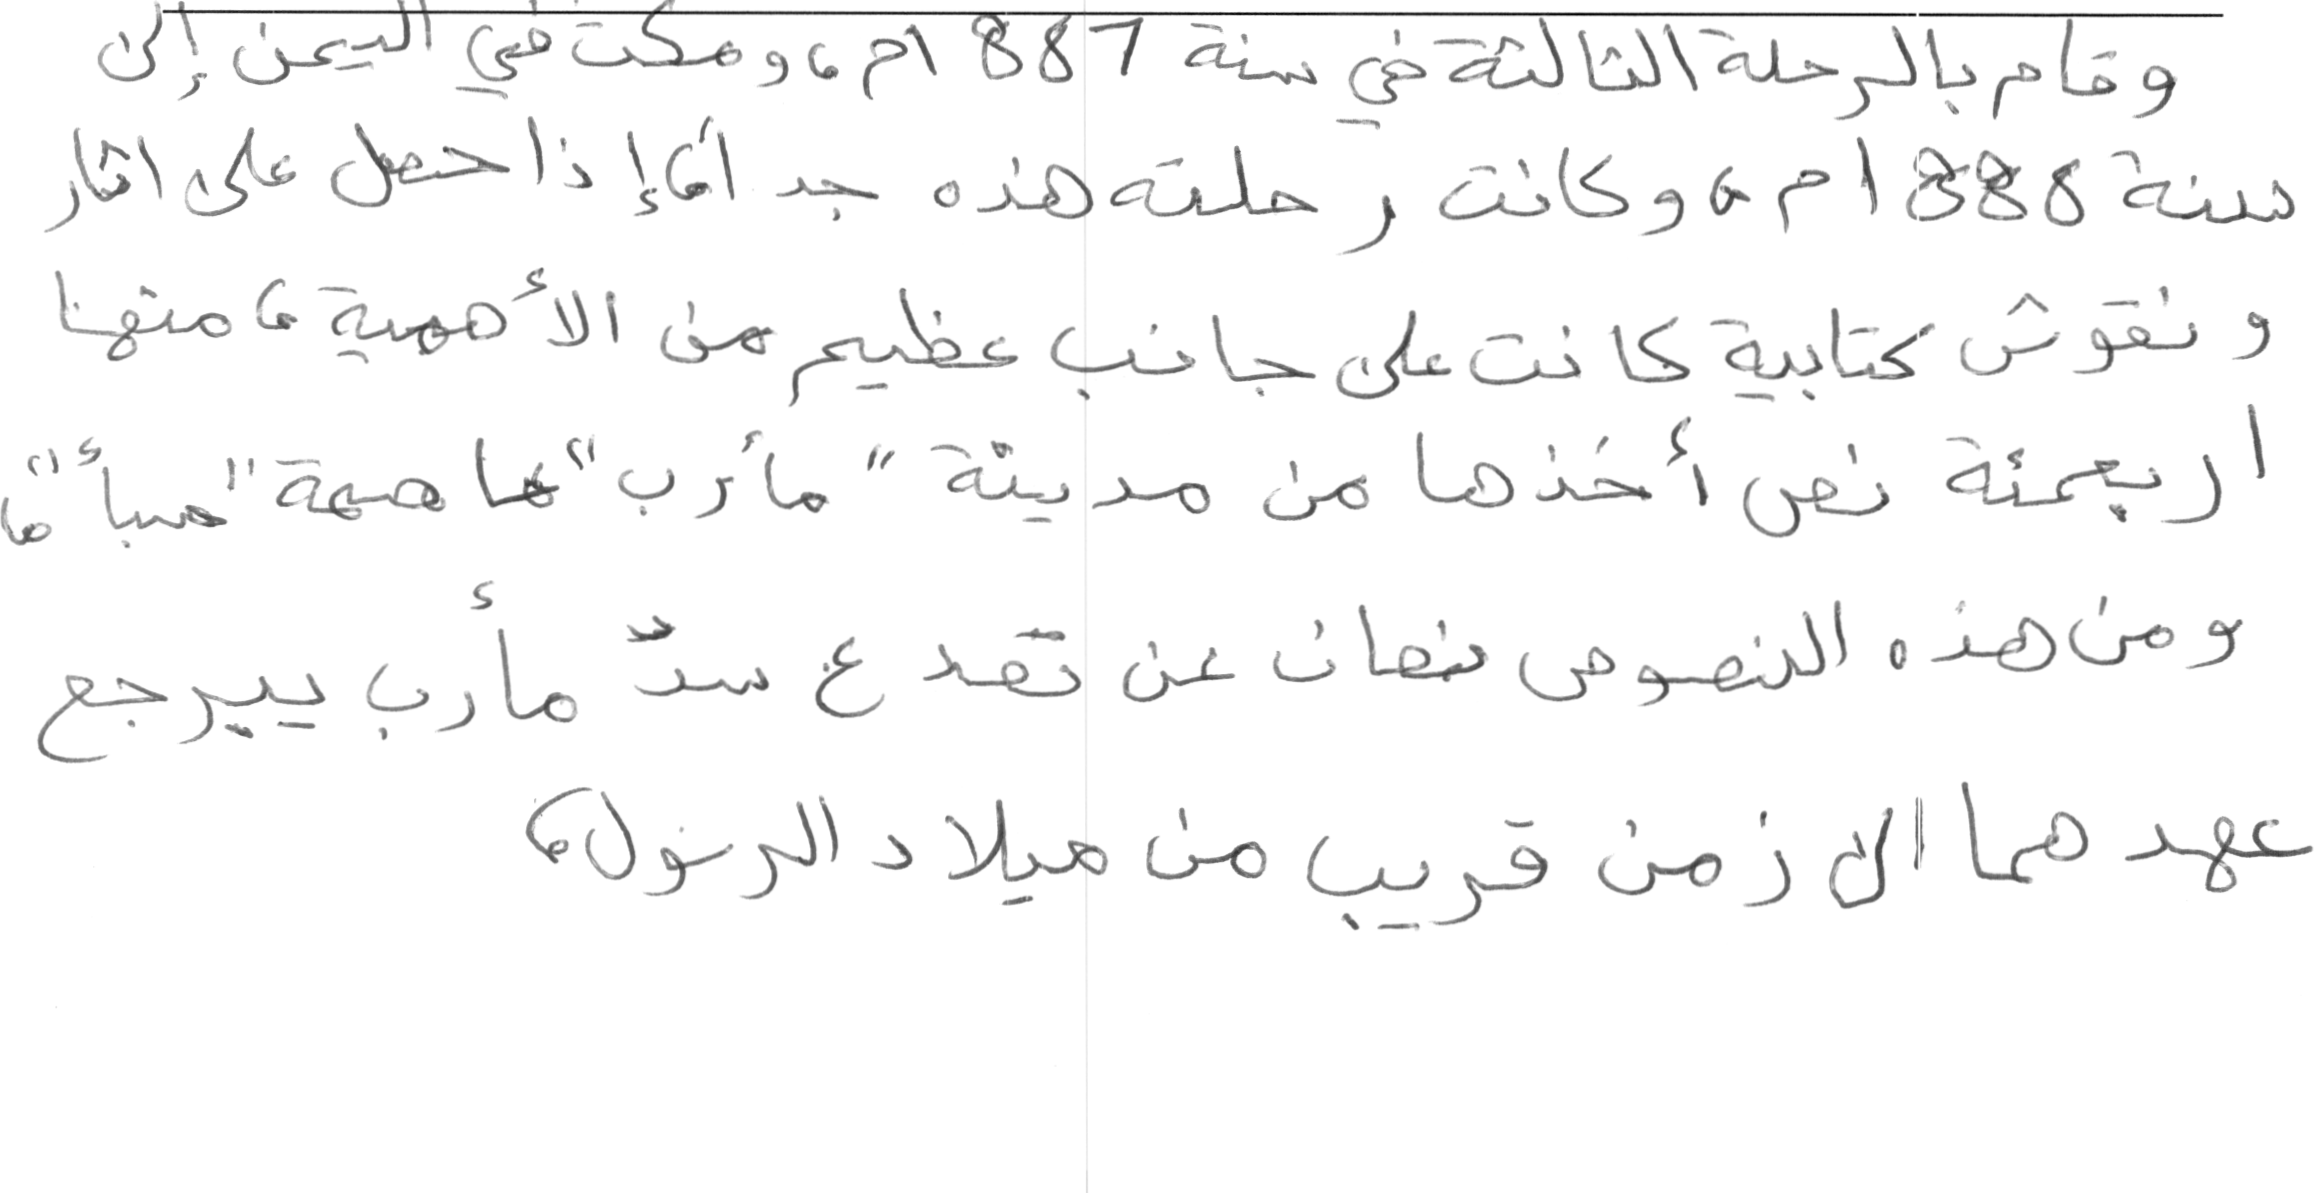 وقام بالرحلة الثالثة في سنة 1887م، ومكث في اليمن إلى
سنة 1888م، وكانت رحلته هذه جد أ، إذا حصل على اثار
ونقوش كتابية كانت على جانب عظيم من الأهمية، منها
اربعمئة نص أخذها من مدينة "مأرب" عاصمة "سبأ"،
ومن هذه النصوص نصان عن تصدع سدّ مأرب ييرجع
عهدهما الى زمن قريب من ميلاد الرسول،